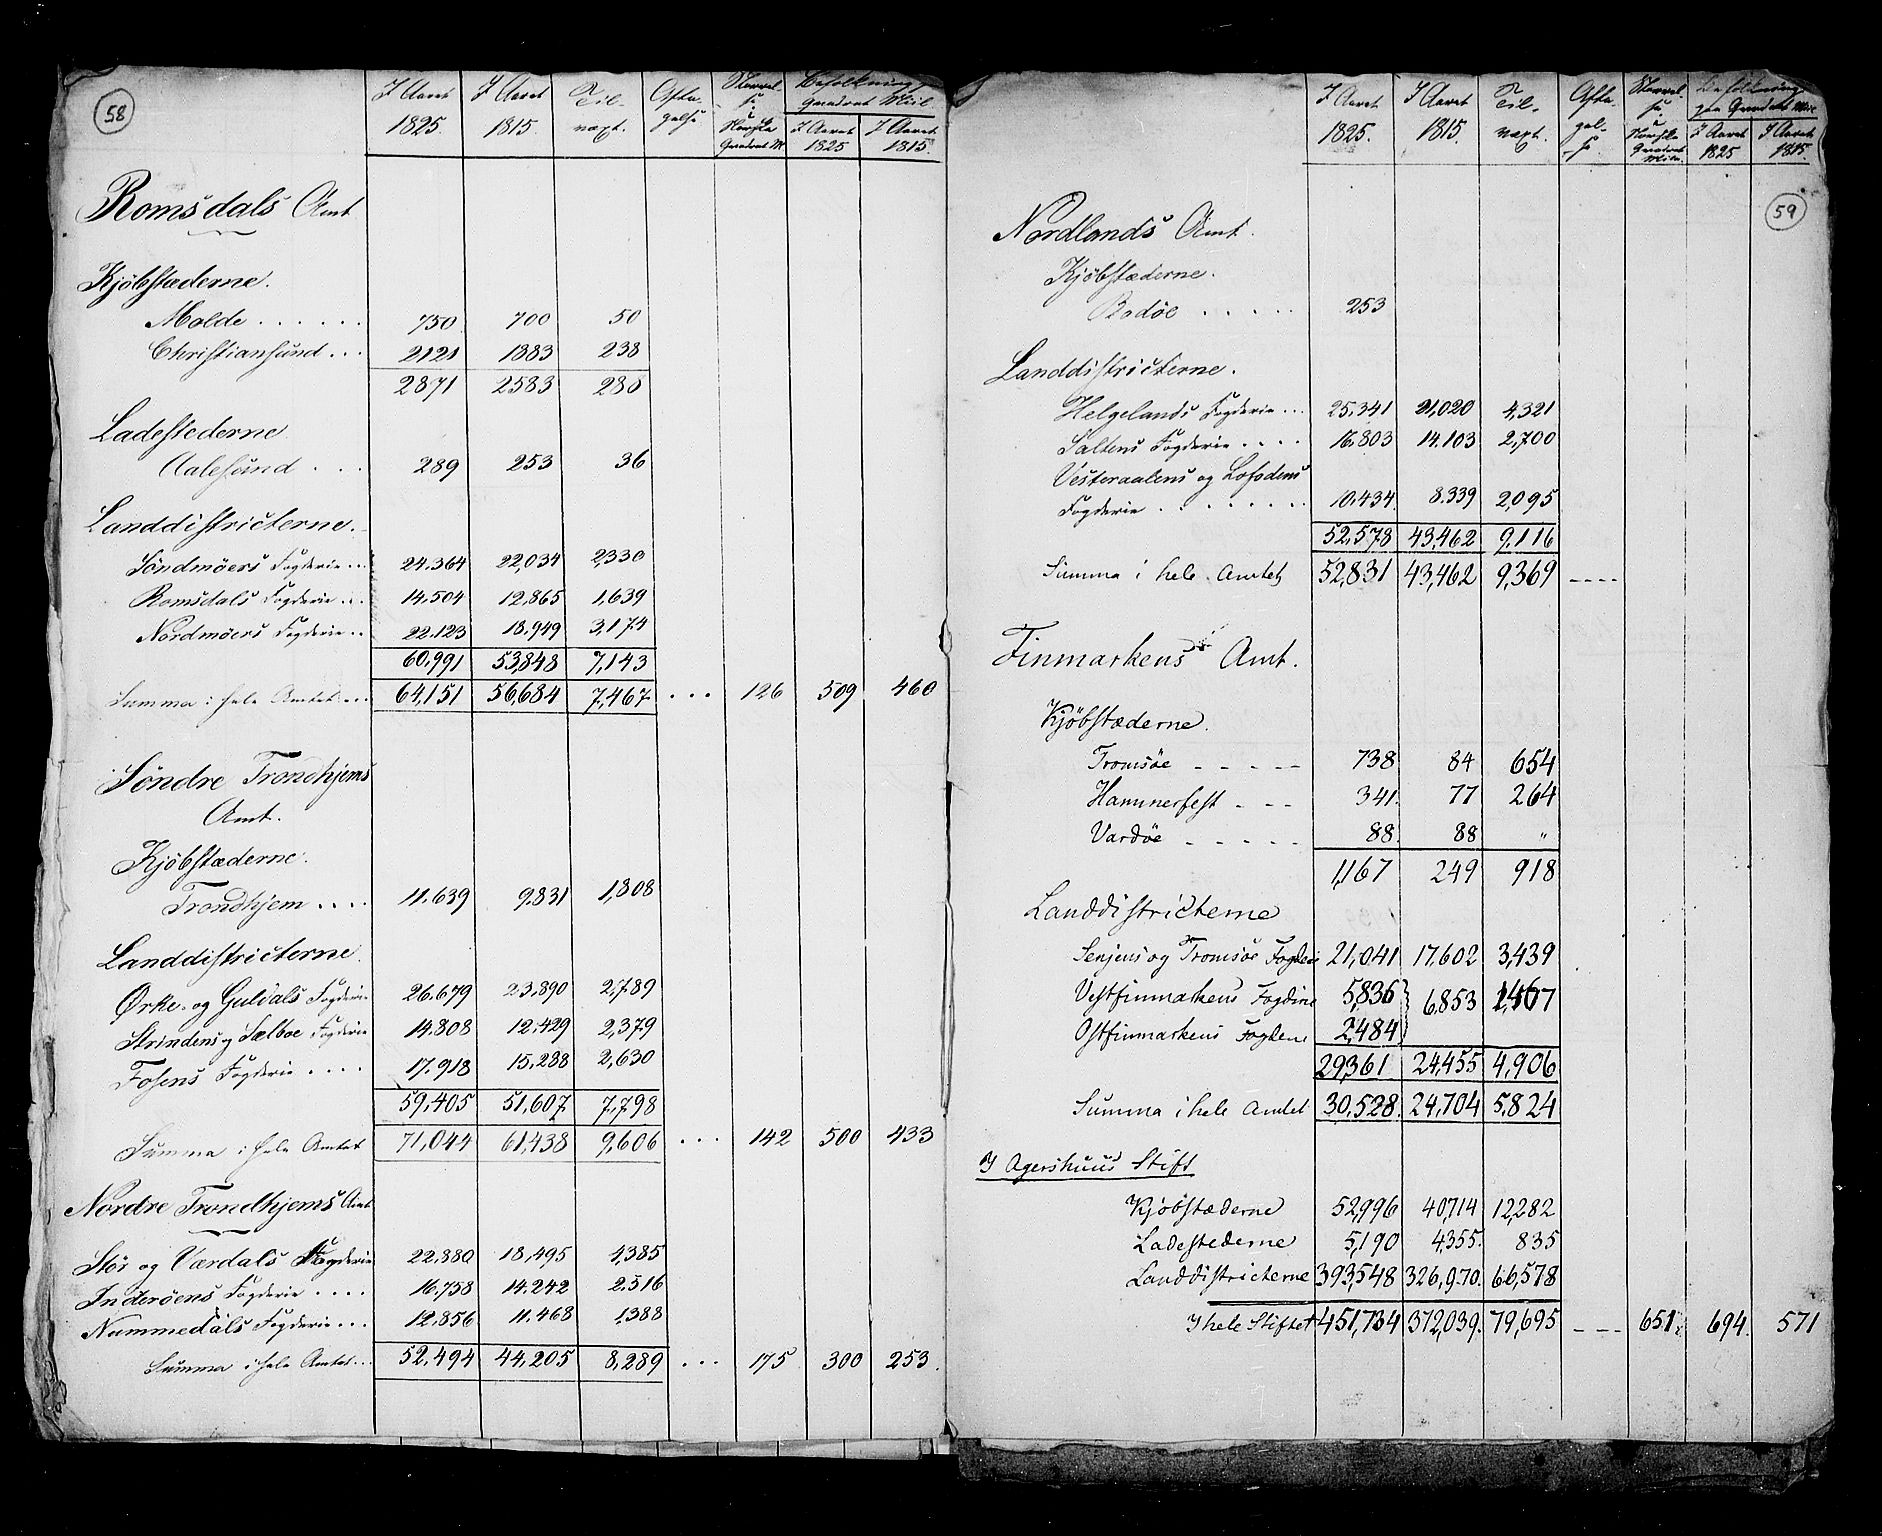 58
I Aaret 1825. | I Aaret 1815. | Til-væxt. | Afta-gelse | Størrel-se. Norske Quadrat M | Befolkning Quadrat Miil I Aaret 1825 | I Aaret 1815.
Romsdals Amt
Kjøbstæderne.
Molde . . . . . . 750 700 50
Christiansund . . . 2121 1883 238
2871 2583 288
Ladestederne
Aalesund . . . 289 253 36
Landdistricterne.
Söndmöers Fogderie . . . 24.364 22,034 2,330
Romsdals Fogderie . . . 14.504 12,865 1,639
Nordmöers Fogderie . . 22.123 18.949 3,174
60,991 53,848 7,143
Summa i hele Amtet . . . 64,151 56,684 7,467 . . . 126 509 460
Söndre Trondhjems
Amt.
Kjöbstæderne.
Trondhjem . . . . 11.639 9.831 1,808
Landdistricterne.
Ørke- og Guldals Fogderie 26.679 23,890 2,789
Strindens og Sælboe Fogderie 14.808 12,429 2,379
Fosens Fogderie . . . . 17.918 15,288 2,630
59,405 51,607 7,798
Summa i hele Amtet 71,044 61,438 9,606 . . . 142 500 433
Nordre Trondhjems Amt
Stör og Værdals Fogderie 22,880 18,495 4,385
Inderöens Fogderie . . . . 16,758 14.242 2.516
Nummedals Fogderie . . . 12,856 11.468 1,388
52,494 44,205 8,289 . . . 175 300 253.
Summa i hele Amtet . . .
I Aaret 1825. | I Aaret 1815. | Til-væxt. | Afta-gel-se | Størrel-se. Norske Quadrat Mile. | Befolkning paa Quadrat Miil I Aaret 1825 | I Aaret 1815.
59
Nordlands Amt.
Kjöbstæderne.
Bodöe . . . . . 253
Landdistricterne.
Helgelands Fogderie . . . 25.341 21,020 4,321
Saltens Fogderie . . . . 16.803 14.103 2,700
Vesteraalens og Lofodens
Fogderie . . . . . . . . 10.434 8.339 2,095
52,578 43,462 9.116
Summa i hele Amtet 52,831 43,462 9,369 ----
Finmarkens Amt.
Kjöbstæderne.
Tromsöe - - - - - 738 84 654
Hammerfest - - - 341. 77 264
Vardöe - - - - - 88. 88 "
1,167 249 918
Landdistricterne
Senjens og Tromsöe Fogderie 21,041 17,602 3,439
Vestfinmarkens Fogderie 5,836 } 6,853 1,467
Ostfinmarkens Fogderie 2,484
29,361 24,455 4,906
Summa i hele Amtet 30,528. 24,704 5,824
I Agershuus Stift
Kjöbstæderne 52,996 40,714 12,282
Ladestederne 5,190 4,355. 835
Landdistricterne 393,548 326,970. 66,578
I hele Stiftet 451,734 372,039. 79,695 - - - 651 694. 571